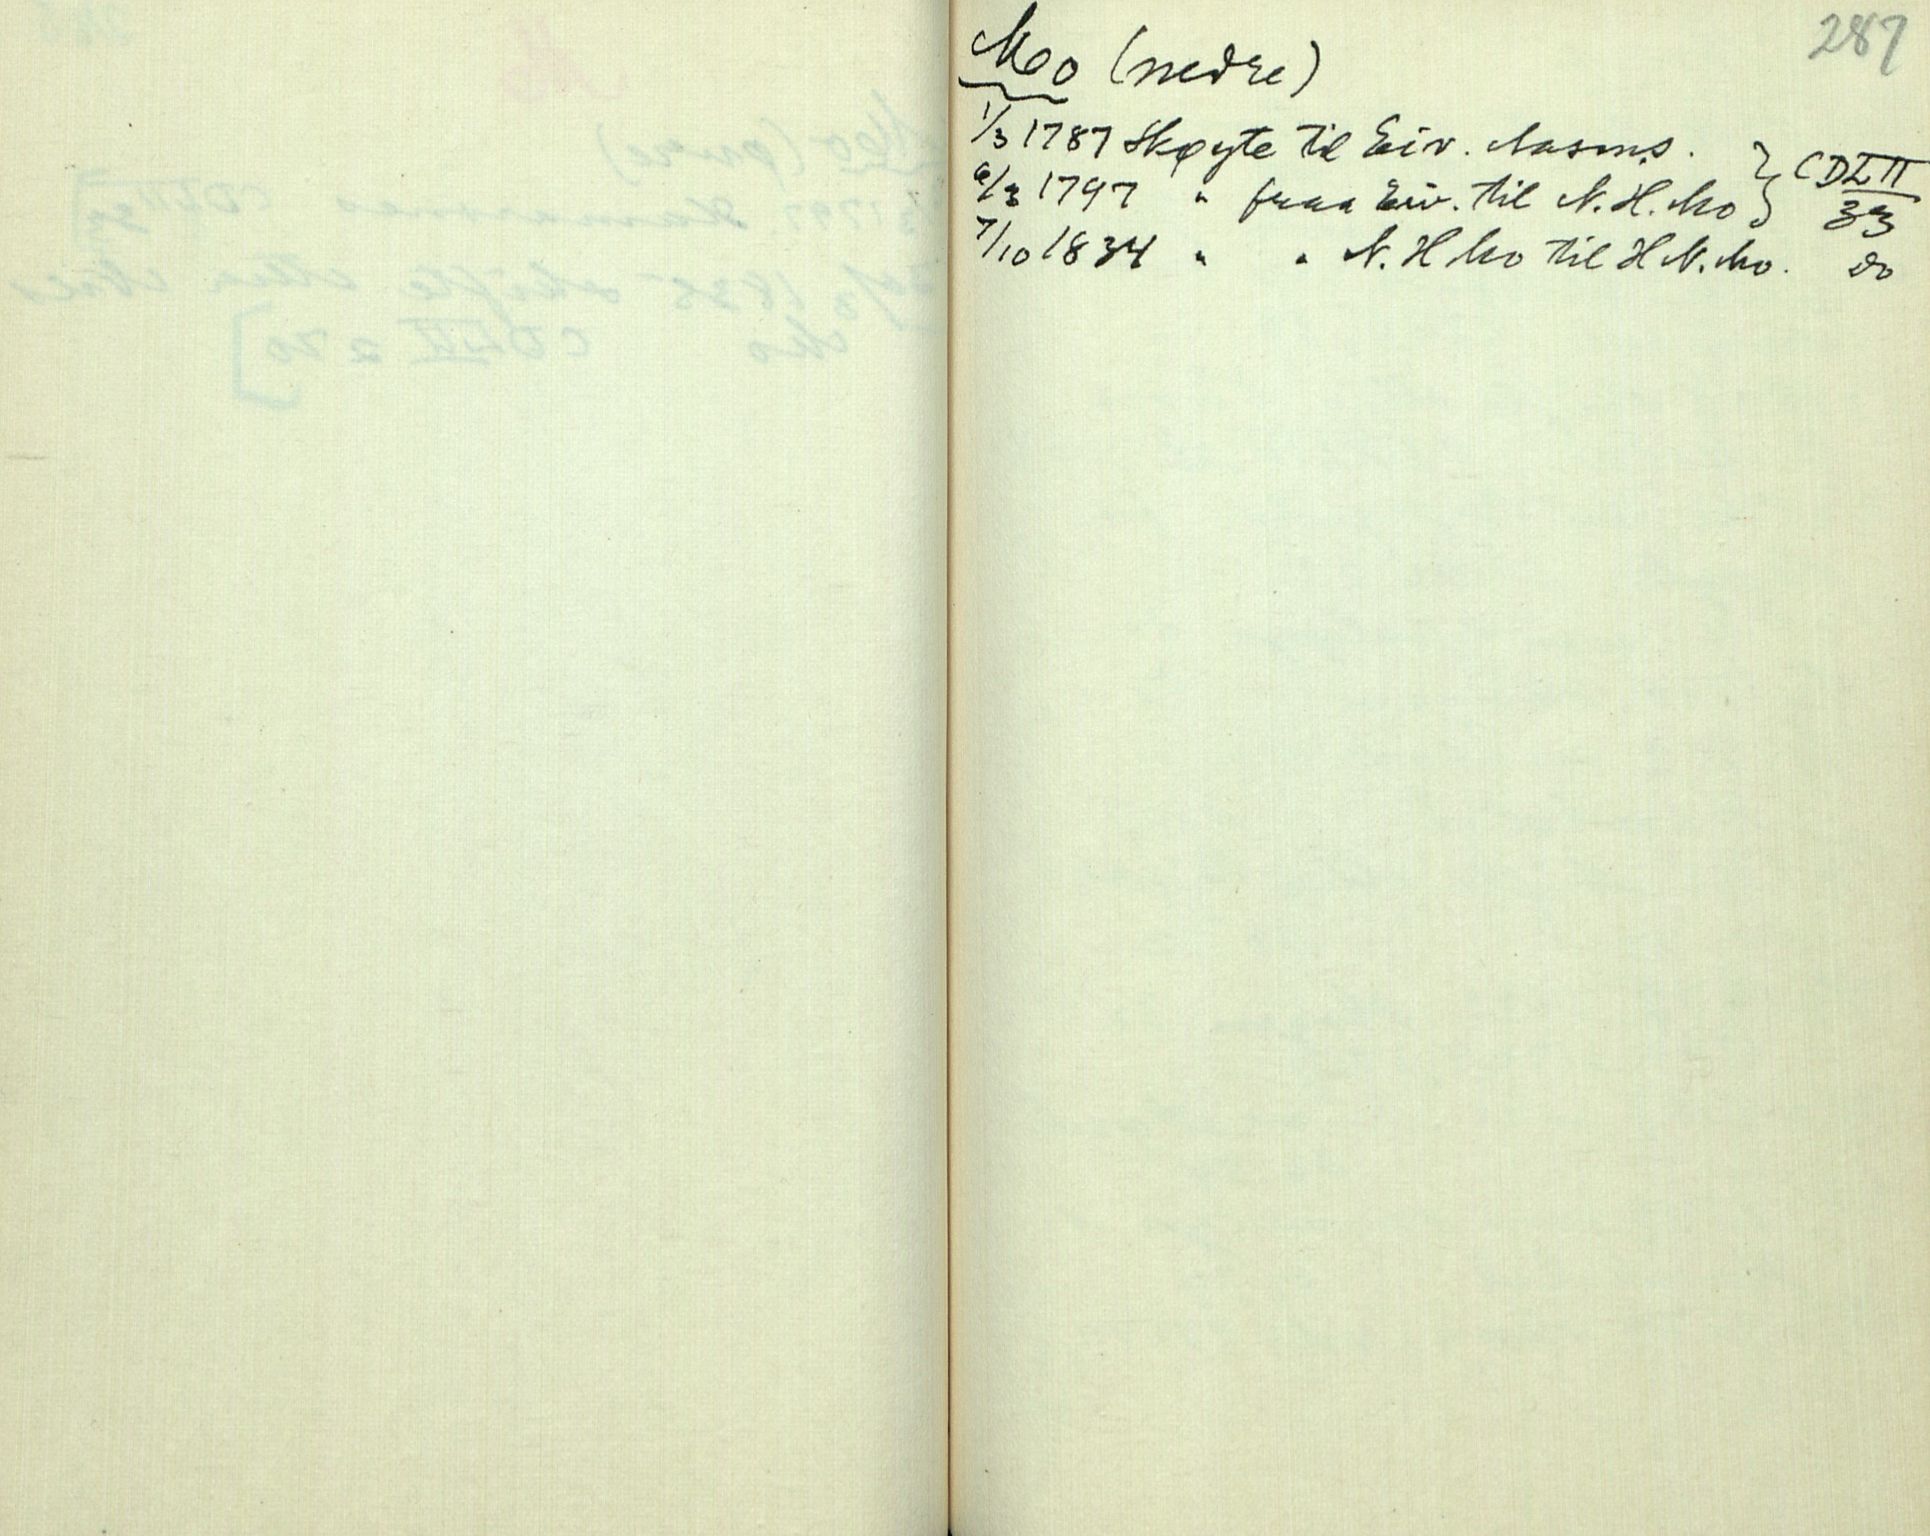 287
Mo (nedre)
1/3 1787 Skøyte til Eiv. Aasms. } CDLII
6/3 1797 " fraa Eiv. til N. H. Mo } 33
7/10 1834 " " N. H Mo til H N. Mo. do